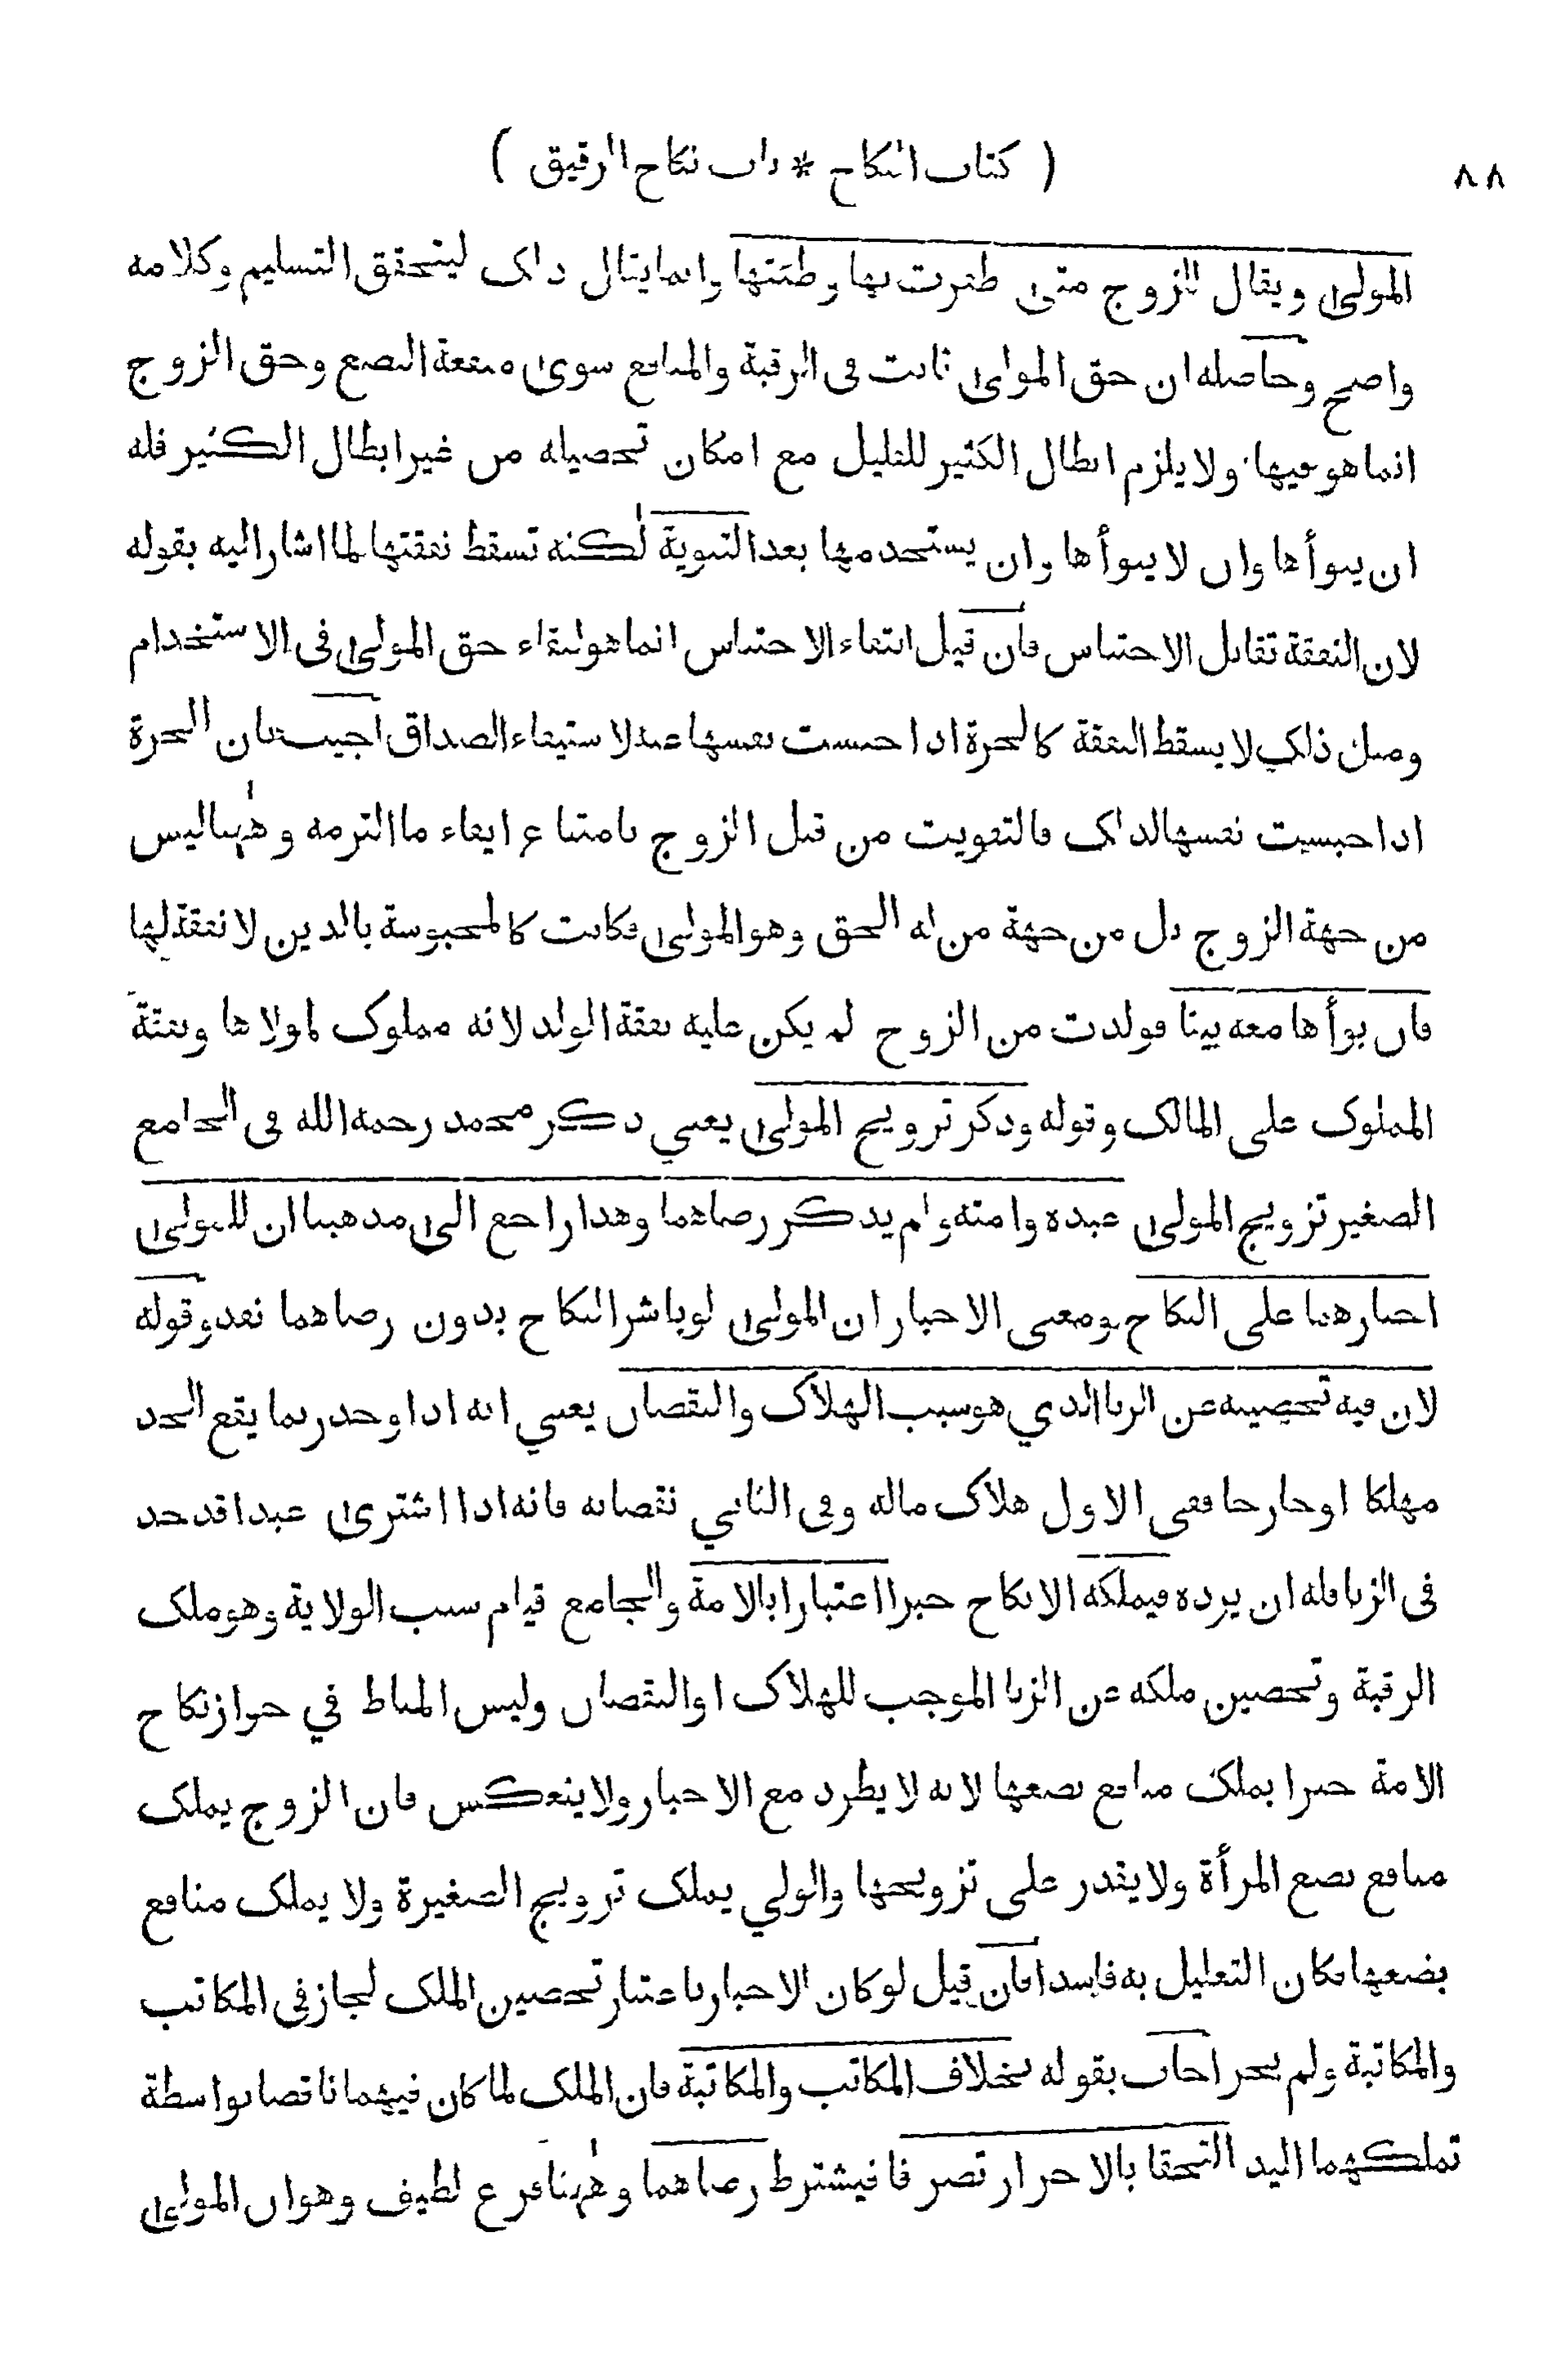 ٨٨
( كتاب النكاح * باب نكاح الرقيق )
المولى ويقال للزوج متى ظفرت بها وطئتها وانما يقال ذلك ليتحقق التسليم وكلامه
واضح وحاصله ان حق المولى ثابت فى الرقبة والمنافع سوى منفعة البضع وحق الزوج
انما هو فيها ولا يلزم ابطال الكثير للقليل مع امكان تحصيله من غير ابطال الكثير فله
ان يبوأها وان لا يبوأها وان يستخدمها بعد التبوية لكنه تسقط نفقتها لما اشار اليه بقوله
لان النفقة تقابل الاحتباس فان قيل انتفاء الاحتباس انما هو لبقاء حق المولى فى الاستخدام
ومثل ذلك لا يسقط النفقة كالحرة اذا حبست نفسها عنه لاستيفاء الصداق اجيب بان الحرة
اذا حبست نفسها لذلك فالتفويت من قبل الزوج بامتناع ايفاء ما التزمه وههنا ليس
من جهة الزوج بل من جهة من له الحق وهو المولى فكانت كالمحبوسة بالدين لا نفقة لها
فان بوأها معه بيتا فولدت من الزوج لم يكن عليه نفقة الولد لانه مملوك لمولاها ونفقة
المملوك على المالك وقوله وذكر تزويج المولى يعني ذكر محمد رحمه الله فى الجامع
الصغير تزويج المولى عبده وامته ولم يذكر رضاهما وهذا راجع الى مذهبنا ان للمولى
اجبارهما على النكاح ومعنى الاجبار ان المولى لو باشر النكاح بدون رضاهما نفذ وقوله
لان فيه تحصينه عن الزنا الذي هو سبب الهلاك والنقصان يعني انه اذا وجد ربما يقع الحد
مهلكا او جارحا ففى الاول هلاك ماله وفى الثاني نقصانه فانه اذا اشترى عبدا قد حد
فى الزنا فله ان يرده فيملكه الانكاح جبرا اعتبارا بالامة والجامع قيام سبب الولاية وهو ملك
الرقبة وتحصين ملكه عن الزنا الموجب للهلاك او النقصان وليس المناط في جواز نكاح
الامة جبرا بملك منافع بضعها لانه لا يطرد مع الاجبار ولا ينعكس فان الزوج يملك
منافع بضع المرأة ولا يقدر على تزويجها والولي يملك تزويج الصغيرة ولا يملك منافع
بضعها فكان التعليل به فاسدا فان قيل لو كان الاجبار باعتبار تحصين الملك لجاز فى المكاتب
والمكاتبة ولم يجز اجاب بقوله بخلاف المكاتب والمكاتبة فان الملك لما كان فيهما ناقصا بواسطة
تملكهما اليد التحقا بالاحرار تصرفا فيشترط رضاهما وههنا فرع لطيف وهو ان المولى